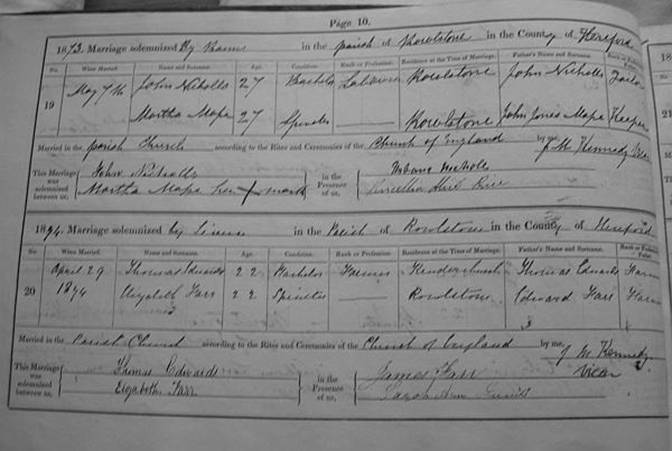 Page 10.
1873. Marriage solemnized By Banns in the parish of Rowlstone in the County of Hereford
No. When Married. Name and Surname. Age. Condition. Rank or Profession. Residence at the Time of Marriage. Father's Name and Surname. Rank or Profession
19 May 7th John Nicholls 27 Bachelor Labourer Rowlstone John Nicholls
Martha Mapp 27 Spinster Rowlstone John Jones Mapp Keeper
Married in the parish Church according to the Rites and Ceremonies of the Church of England by me, J M Kennedy Vicar
This Marriage was solemnized between us, John Nicholls in the Presence of us,
Martha Mapp her + mark
1874. Marriage solemnized by in the Parish of Rowlstone in the County of Hereford
No. When Married. Name and Surname. Age. Condition. Rank or Profession. Residence at the Time of Marriage. Father's Name and Surname. Rank or Profession
20 April 29 Thomas Edwards 22 Bachelor Farmer Thomas Edwards
1874 Elizabeth Farr 22 Spinster Rowlstone Edward Farr
Married in the Parish Church according to the Rites and Ceremonies of the Church of England by me, J M Kennedy
Vicar
This Marriage was solemnized between us, Thomas Edwards in the Presence of us, James Farr
Elizabeth Farr Sarah Ann